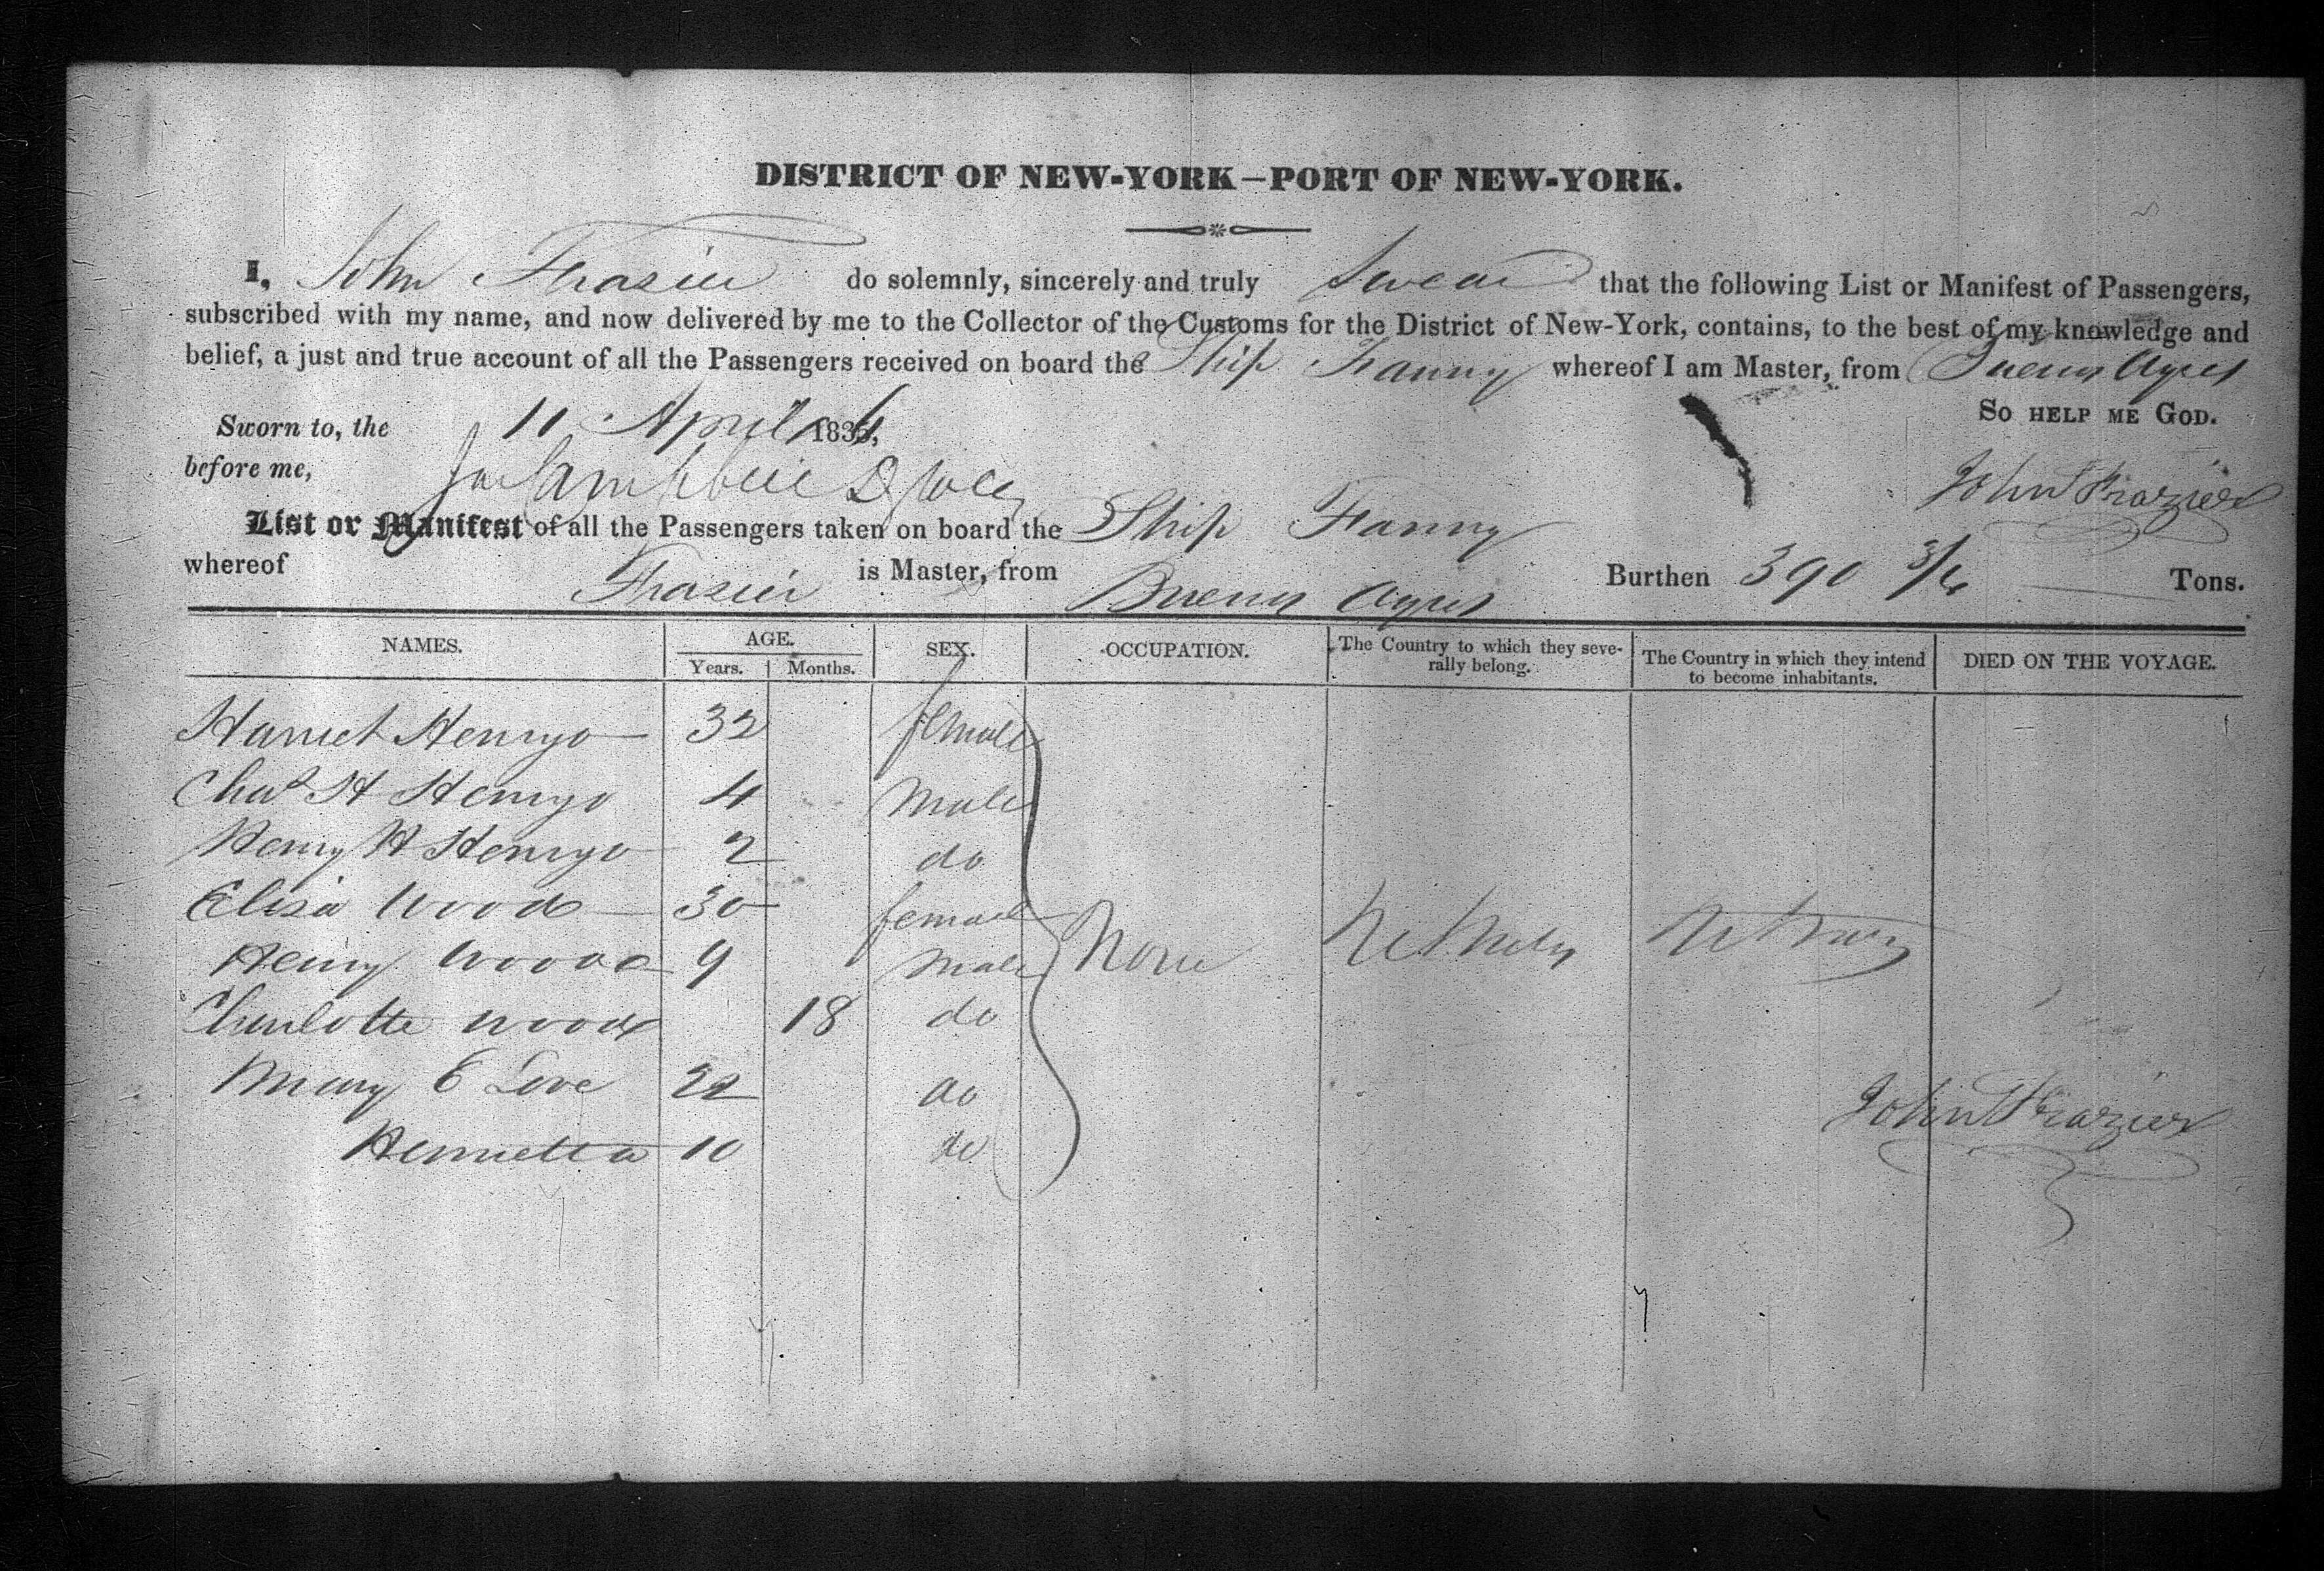 DISTRICT OF NEW-YORK—PORT OF NEW-YORK.
I, John Frasier do solemnly, sincerely and truly Swear that the following List or Manifest of Passengers,
subscribed with my name, and now delivered by me to the Collector of the Customs for the District of New-York, contains, to the best of my knowledge and
belief, a just and true account of all the Passengers received on board the Ship Fanny whereof I am Master, from Buenos Ayres
So help me God.
Sworn to, the 11 April 1836,
before me,
John Frazier
List or Manifest of all the Passengers taken on board the Ship Fanny
whereof Frasier is Master, from Buenos Ayres Burthen 390 Tons.
NAMES. AGE. SEX. OCCUPATION. The Country to which they seve-
rally belong. The Country in which they intend
to become inhabitants. DIED ON THE VOYAGE.
Years. Months.
Harriet 32 female
Chas H 4 Male
Henry H 2 do
Elisa Woods 30 female
Henry Woods 9 Male
Charlotte Woods 18 do
None
Mary E Love 22 do
Henrietta 10 do
John Frazier